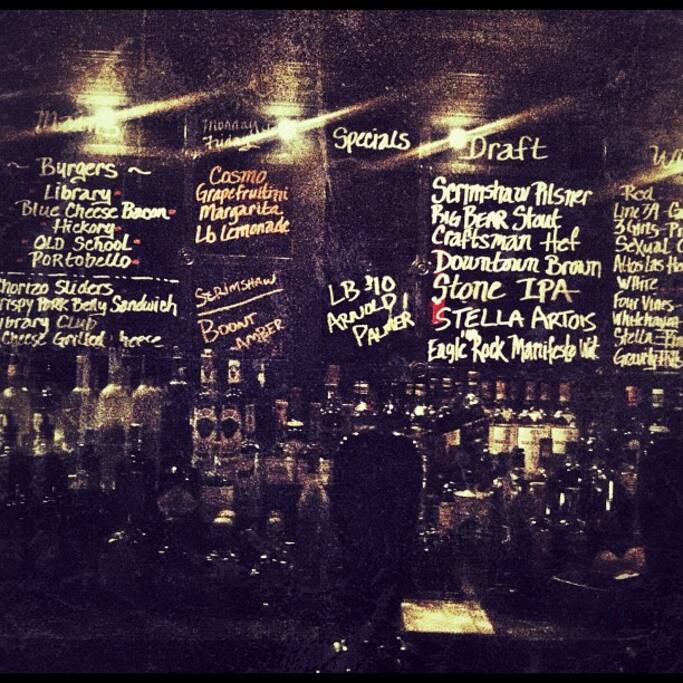 ~ Burgers ~
Library
Blue Cheese Bacon
Hickory
OLD School
Portobello
Chorizo Sliders
Crispy Pork Belly Sandwich
Library Club
Cheese Grilled Cheese
Monday
Friday
Cosmo
Grapefruitini
Margarita
Lb Lemonade
SCRIMSHAW
BOONT
AMBER
Specials
LB $10
ARNOLD
PALMER
Draft
Scrimshaw Pilsner
BIG BEAR Stout
Craftsman Hef
Downtown Brown
Stone IPA
STELLA ARTOIS
Eagle Rock Manifesto Wit
Red
Line 39
3 Girls
White
Four Vines
Whitehaven
Stella